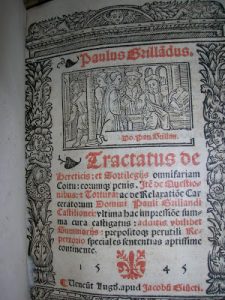 Paulus Grillādus.
Tractatus de
Hereticis: et Sortilegijs omnifariam
Coitu: eorumqz penis. Itē de Questio
nibus: et Tortura: ac de Relaxatiōe Car
ceratorum Domini Pauli Grillandi
Castilionei: vltima hac impressiōe summa
cura castigatus: additis vbilibet
Summarijs: prepositoqz perutili Re
pertorio speciales sententias aptissime
continente.
1545
Lugd. apud Jacobū Giūcti.